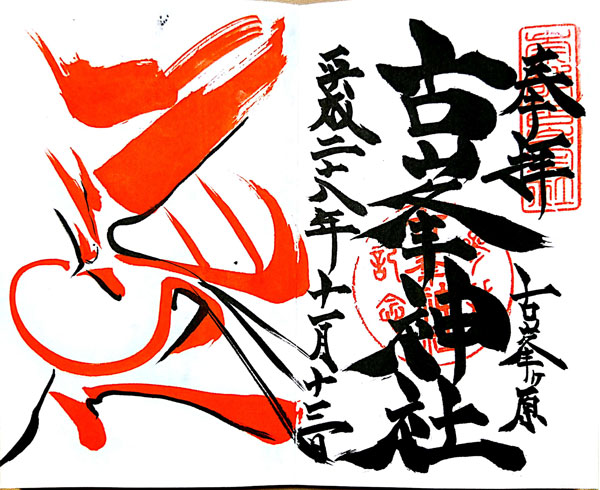 奉拝
古峯ヶ原
古峯神社
平成二十八年十一月十三日